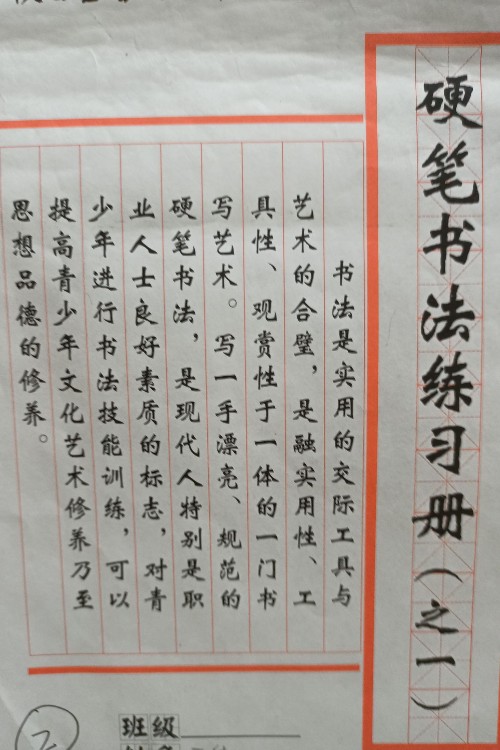 硬笔书法练习册（之一）
书法是实用的交际工具与
艺术的合璧，是融实用性、工
具性、观赏性于一体的一门书
写艺术。写一手漂亮、规范的
硬笔书法，是现代人特别是职
业人士良好素质的标志，对青
少年进行书法技能训练，可以
提高青少年文化艺术修养乃至
思想品德的修养。
班级